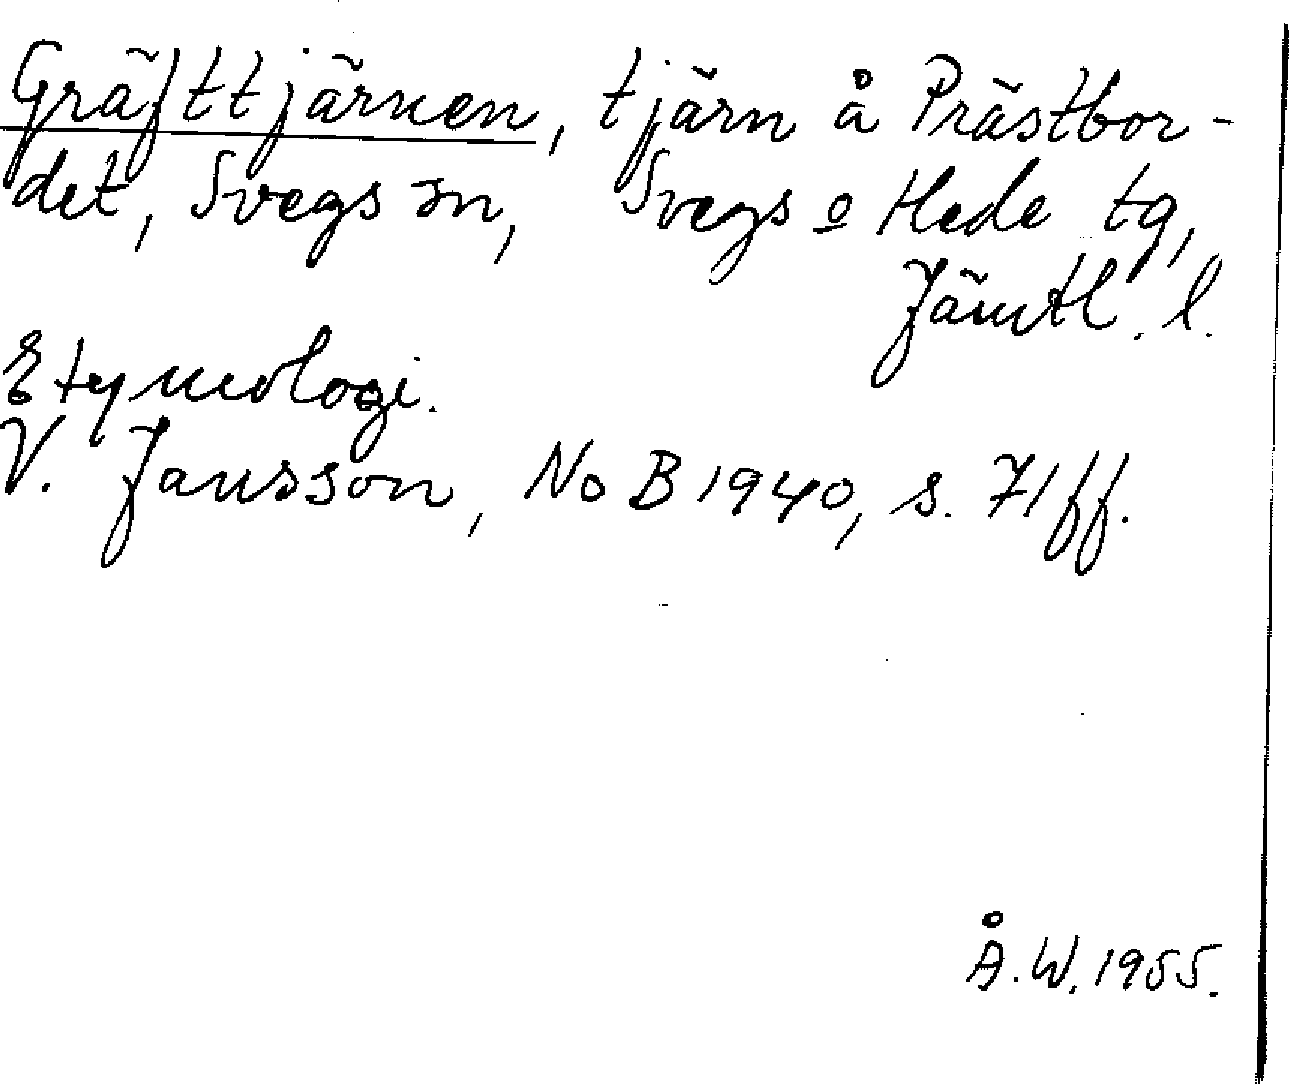 Gräfttjärnen, tjärn å Prästbor-
det, Svegs sn, Svegs o Hede tg,
Jämtl. l.
Etymologi.
V. Jansson, NoB 1940, s. 71 ff.
Å.W. 1955.